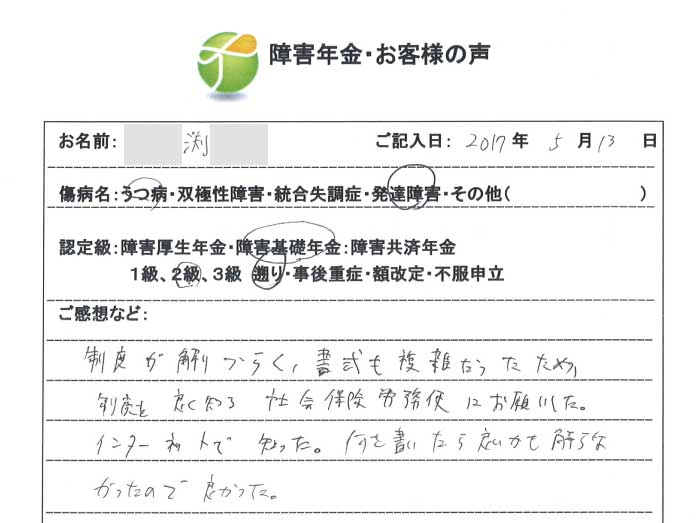 障害年金・お客様の声
お名前: 渕 ご記入日: 2017 年 5 月 13 日
傷病名:うつ病・双極性障害・統合失調症・発達障害・その他( )
認定級:障害厚生年金・障害基礎年金:障害共済年金
1級、2級、3級 遡り・事後重症・額改定・不服申立
ご感想など:
制度が解りづらく、書式も複雑だったため、
制度を良く知る 社会保険労務使にお願いした。
インターネットで知った。何を書いたら良いかも解らな
かったので良かった。